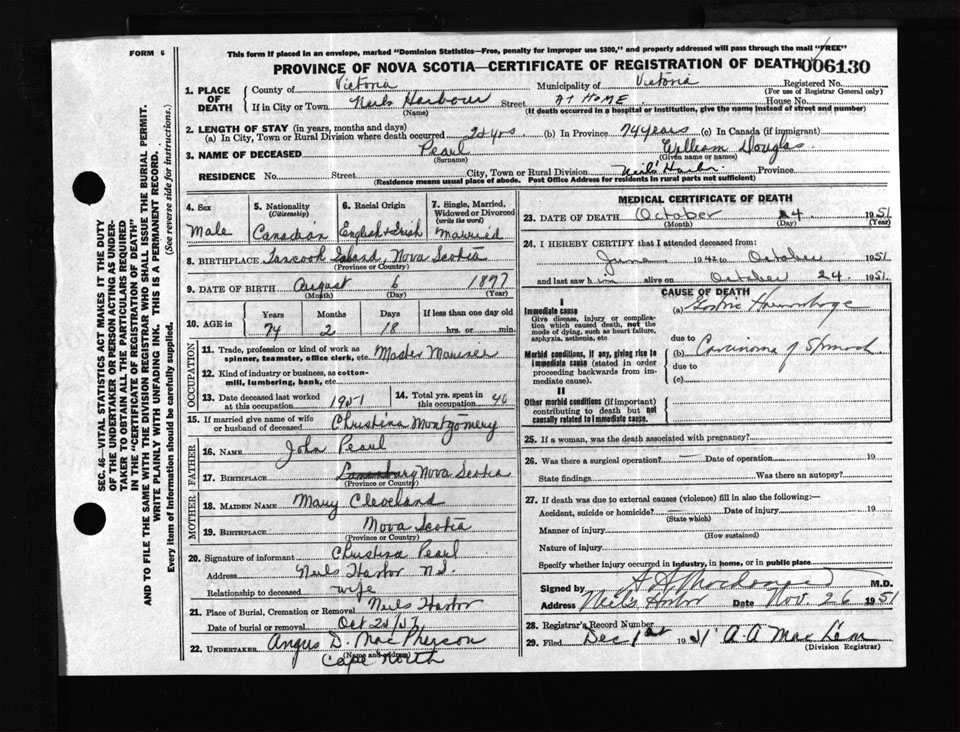 FORM 6
This form if placed in an envelope, marked "Dominion Statistics—Free, penalty for improper use $300," and properly addressed will pass through the mail "FREE"
PROVINCE OF NOVA SCOTIA—CERTIFICATE OF REGISTRATION OF DEATH 006130
SEC. 46—VITAL STATISTICS ACT MAKES IT THE DUTY
OF THE UNDERTAKER OR PERSON ACTING AS UNDER-
TAKER TO OBTAIN ALL THE PARTICULARS REQUIRED
IN THE "CERTIFICATE OF REGISTRATION OF DEATH"
AND TO FILE THE SAME WITH THE DIVISION REGISTRAR WHO SHALL ISSUE THE BURIAL PERMIT.
WRITE PLAINLY WITH UNFADING INK. THIS IS A PERMANENT RECORD.
Every item of Information should be carefully supplied. (See reverse side for instructions.)
1. PLACE OF DEATH
County of Victoria Municipality of Victoria Registered No.
(For use of Registrar General only)
If in City or Town Neils Harbour Street AT HOME House No.
(Name) (If death occurred in a hospital or institution, give the name instead of street and number)
2. LENGTH OF STAY (in years, months and days)
(a) In City, Town or Rural Division where death occurred 24 yrs (b) In Province 74 years (c) In Canada (if immigrant)
3. NAME OF DECEASED Pearl William Douglas
(Surname) (Given name or names)
RESIDENCE No. Street City, Town or Rural Division Neils' Harbor Province
(Residence means usual place of abode. Post Office Address for residents in rural parts not sufficient)
4. Sex Male
5. Nationality (Citizenship) Canadian
6. Racial Origin English + Irish
7. Single, Married, Widowed or Divorced (write the word) Married
8. BIRTHPLACE Tancook Island, Nova Scotia
(Province or Country)
9. DATE OF BIRTH August 6 1877
(Month) (Day) (Year)
10. AGE in Years Months Days If less than one day old
74 2 18 hrs. or min.
OCCUPATION
11. Trade, profession or kind of work as spinner, teamster, office clerk, etc. Master Mariner
12. Kind of industry or business, as cotton-mill, lumbering, bank, etc.
13. Date deceased last worked at this occupation 1951
14. Total yrs. spent in this occupation 40
15. If married give name of wife or husband of deceased Christina Montgomery
FATHER
16. NAME John Pearl
17. BIRTHPLACE Lunenburg Nova Scotia
(Province or Country)
MOTHER
18. MAIDEN NAME Mary Cleveland
19. BIRTHPLACE Nova Scotia
(Province or Country)
20. Signature of informant Christina Pearl
Address Neils Harbor N.S.
Relationship to deceased wife
21. Place of Burial, Cremation or Removal Neils Harbor
Date of burial or removal Oct
22. UNDERTAKER Angus D. MacPherson
(Name and address)
Cape North
MEDICAL CERTIFICATE OF DEATH
23. DATE OF DEATH October 24 1951
(Month) (Day) (Year)
24. I HEREBY CERTIFY that I attended deceased from:
June 19 to October 1951
and last saw him alive on October 24 1951.
CAUSE OF DEATH
I
Immediate cause (a) Gastric Haemorrhage
Give disease, injury or complication which caused death, not the mode of dying, such as heart failure, asphyxia, asthenia, etc.
due to
Morbid conditions, if any, giving rise to immediate cause (stated in order proceeding backwards from immediate cause).
(b) Carcinoma of Stomach
due to
(c)
II
Other morbid conditions (if important) contributing to death but not causally related to immediate cause.
25. If a woman, was the death associated with pregnancy?
26. Was there a surgical operation? — Date of operation 19
State findings Was there an autopsy?
27. If death was due to external causes (violence) fill in also the following:—
Accident, suicide or homicide? Date of injury 19
(State which)
Manner of injury
(How sustained)
Nature of injury
Specify whether injury occurred in industry, in home, or in public place
Signed by M.D.
Address Neils Harbor Date Nov. 26 1951
28. Registrar's Record Number
29. Filed Dec 1st 1951 A. A. Mac
(Division Registrar)